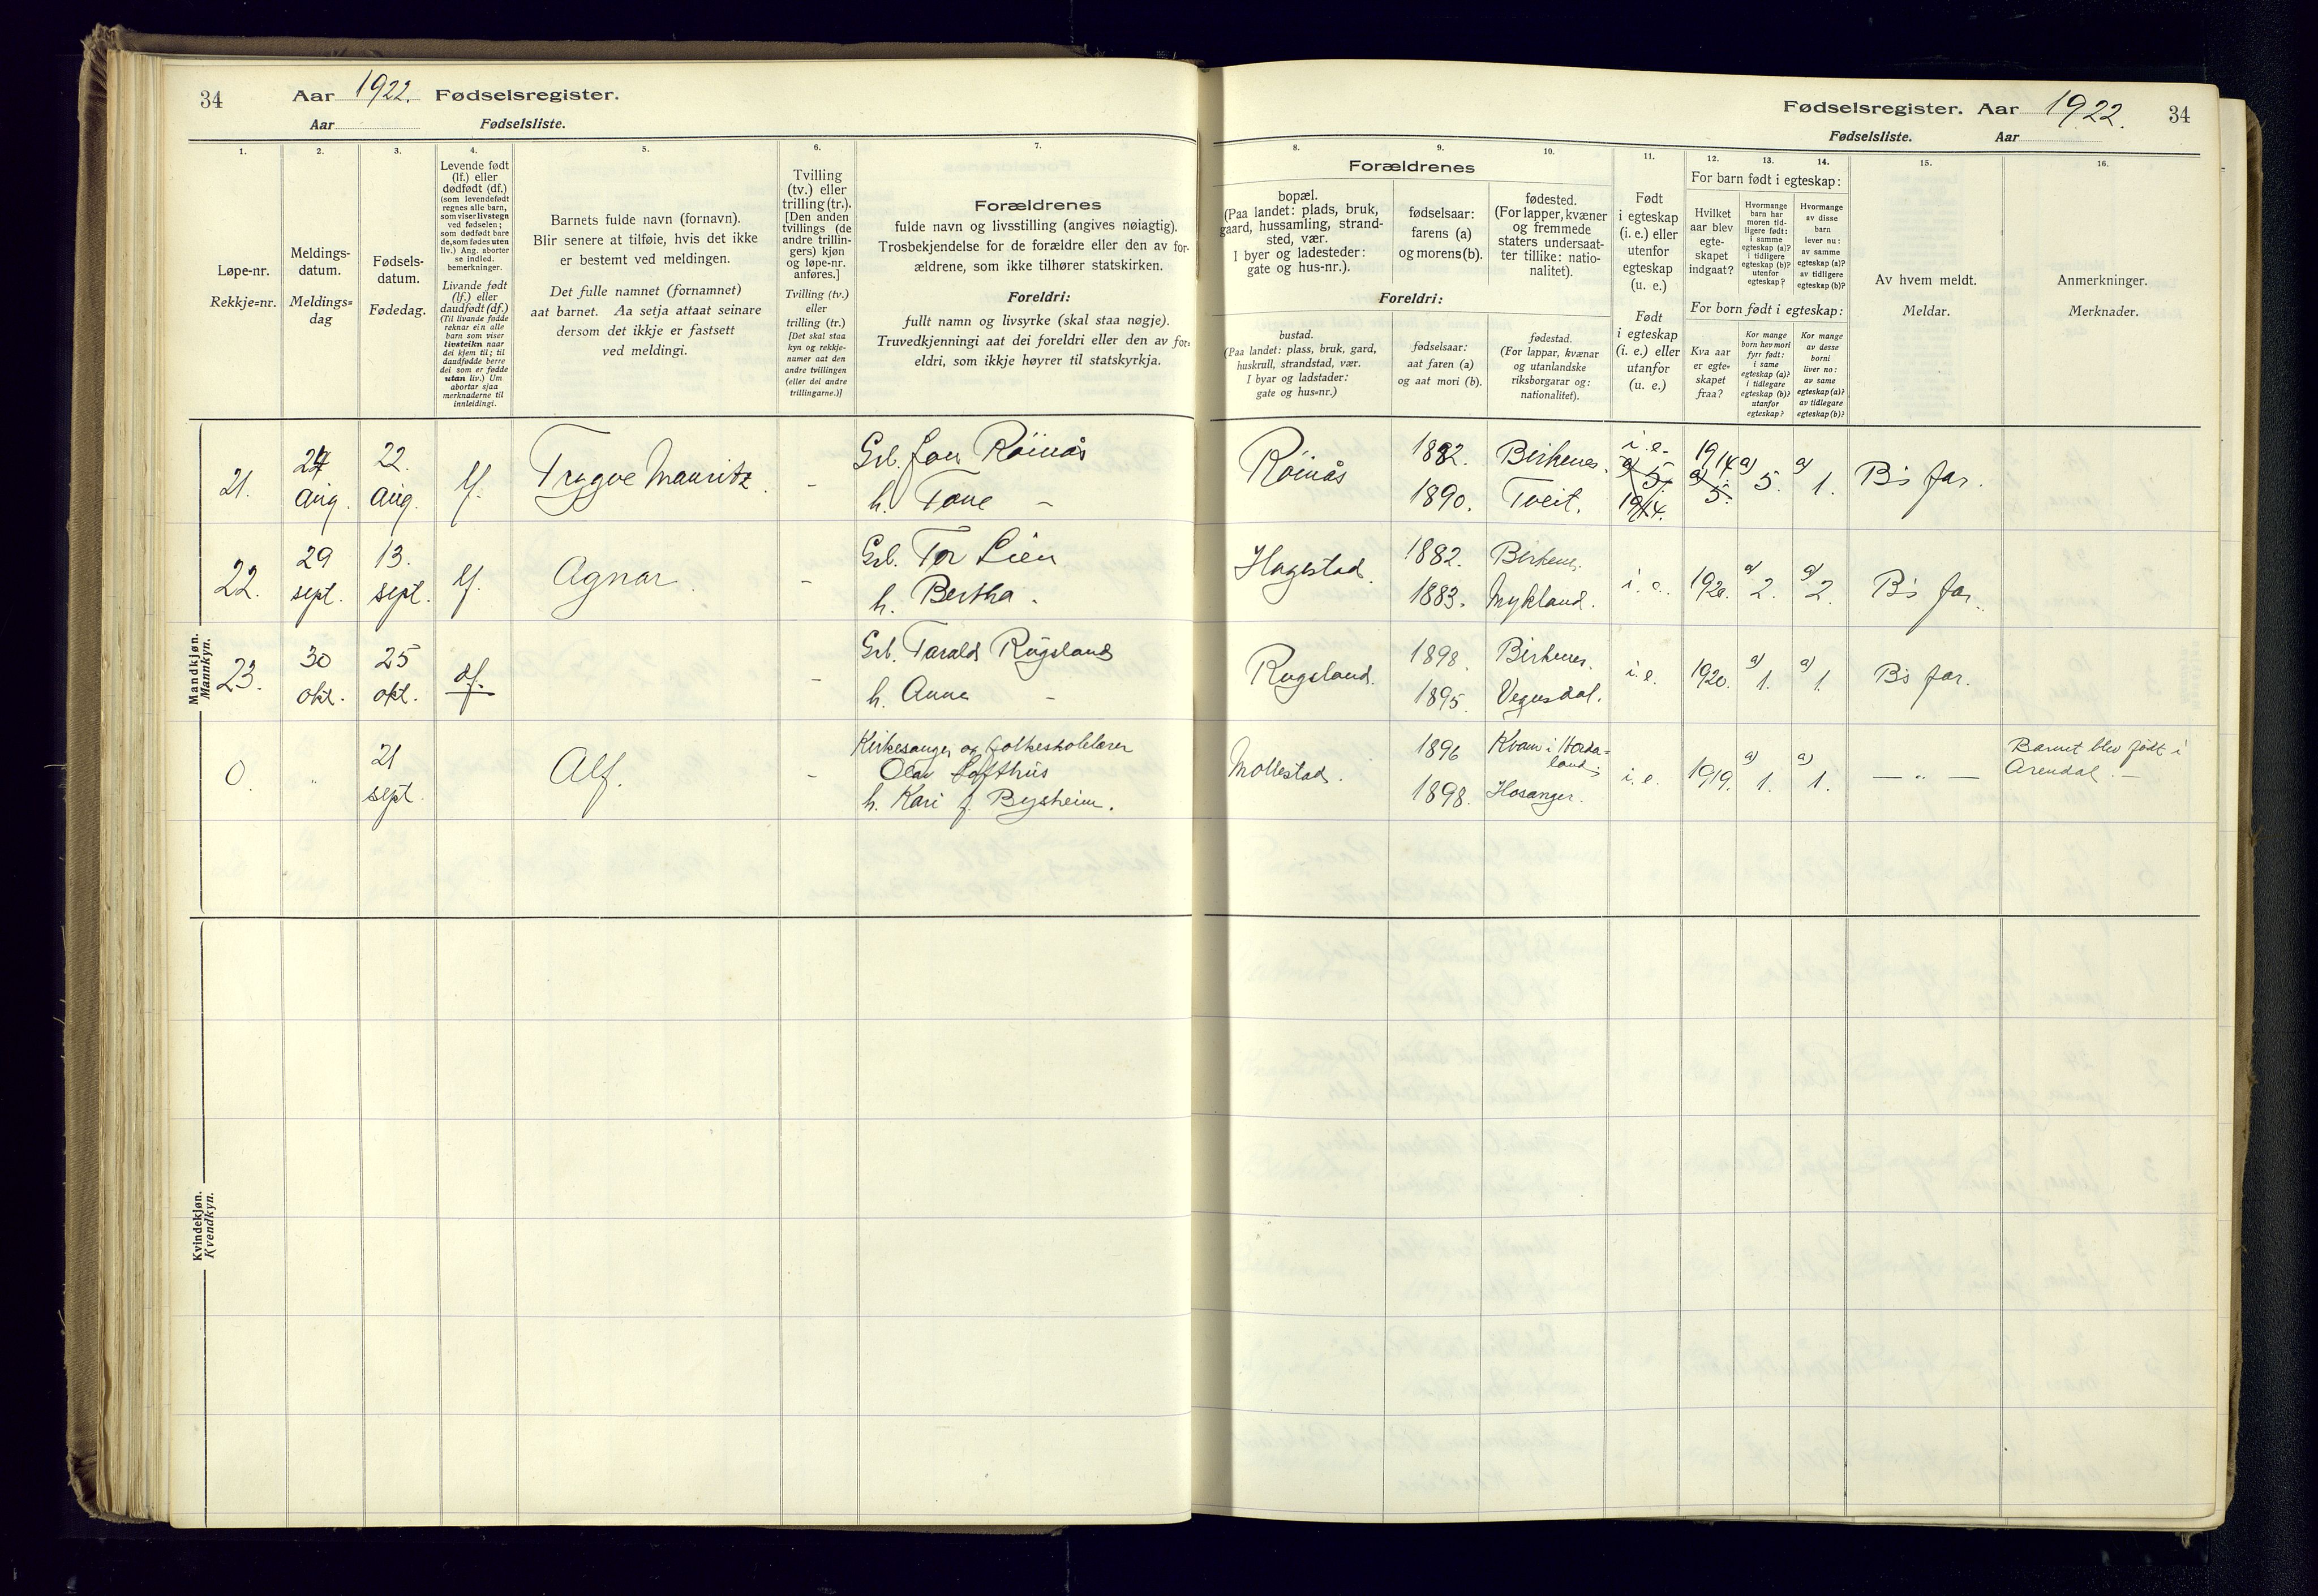 34 Aar 1922. Fødselsregister.
Aar Fødselsliste.
Fødselsregister. Aar 1922. 34
Fødselsliste. Aar
1.
Løpe-nr.
Rekkje=nr.
2.
Meldings-
datum.
Meldings=
dag
3.
Fødsels-
datum.
Fødedag.
4.
Levende født
(lf.) eller
dødfødt (df.)
(som levendefødt
regnes alle barn,
som viser livstegn
ved fødselen;
som dødfødt bare
de, som fødes uten
liv.) Ang. aborter
se indled.
bemerkninger.
Livande født
(lf.) eller
daudfødt (df.)
(Til livande fødde
reknar ein alle
barn som viser
livsteikn naar
dei kjem til; til
daudfødde berre
dei som er fødde
utan liv.) Um
abortar sjaa
merknaderne til
innleidingi.
5.
Barnets fulde navn (fornavn).
Blir senere at tilføie, hvis det ikke
er bestemt ved meldingen.
Det fulle namnet (fornamnet)
aat barnet. Aa setja attaat seinare
dersom det ikkje er fastsett
ved meldingi.
6.
Tvilling
(tv.) eller
trilling (tr.).
[Den anden
tvillings (de
andre trillin-
gers) kjøn
og løpe-nr.
anføres.]
Tvilling (tv.)
eller
trilling (tr.)
[Det skal staa
kyn og rekkje-
numer aat den
andre tvillingen
(eller dei andre
trillingarne.)]
7.
Forældrenes
fulde navn og livsstilling (angives nøiagtig).
Trosbekjendelse for de forældre eller den av for-
ældrene, som ikke tilhører statskirken.
Foreldri:
fullt namn og livsyrke (skal staa nøgje).
Truvedkjenningi aat dei foreldri eller den av for=
eldri, som ikkje høyrer til statskyrkja.
8. 9. 10.
Forældrenes
bopæl.
(Paa landet: plads, bruk,
gaard, hussamling, strand-
sted, vær.
I byer og ladesteder:
gate og hus-nr.).
fødselsaar:
farens (a)
og morens (b).
fødested.
(For lapper, kvæner
og fremmede
staters undersaat-
ter tillike: natio-
nalitet).
Foreldri:
bustad.
(Paa landet: plass, bruk, gard,
huskrull, strandstad, vær.
I byar og ladstader:
gate og hus=nr.)
fødselsaar:
aat faren (a)
og aat mori (b).
fødestad.
(For lappar, kvænar
og utanlandske
riksborgarar og:
nationalitet).
11.
Født
i egteskap
(i. e.) eller
utenfor
egteskap
(u. e.)
Født
i egteskap
(i. e.) eller
utanfor
(u. e.)
12. 13. 14.
For barn født i egteskap:
Hvilket
aar blev
egte-
skapet
indgaat?
Hvormange
barn har
moren tid-
ligere født:
i samme
egteskap (a)?
i tidligere
egteskap (b)?
utenfor
egteskap?
Hvormange
av disse
barn
lever nu:
av samme
egteskap (a)?
av tidligere
egteskap (b)?
For born født i egteskap:
Kva aar
er egte=
skapet
fraa?
Kor mange
barn hev mori
fyrr født:
i same
egteskap (a)?
i tidlegare
egteskap (b)?
utanfor
egteskap?
Kor mange
av desse
borni
liver no:
av same
egteskap (a)?
av tidlegare
egteskap (b)?
15.
Av hvem meldt.
Meldar.
16.
Anmerkninger.
Merknader.
Mandkjøn.
Mannkyn.
21. 24 aug. 22. aug. lf. Trygve Mauritz. –
Grl. Jon Röinås
h. Tone –
Röinås 1882. Birkenes.
1890. Tveit.
i. e. a) 5. 1914.
1914. a) 5. a) 5. a) 1. B's far.
22. 29 sept. 13. sept. lf. Agnar. –
Grl. Tor Lien
h. Bertha –
Hagestad. 1882. Birkenes.
1883. Mykland.
i. e. 1920. a) 2. a) 2. B's far.
23. 30 okt. 25 okt. df. –
Grl. Tarald Rugsland
h. Anna –
Rugsland. 1898. Birkenes.
1895. Vegusdal.
i. e. 1920. a) 1. a) 1. B's far.
0. " 21 sept. Alf. –
Kirkesanger og folkeskolelærer
Olav Lofthus
h. Kari f. Bysheim.
Mollestad. 1896 Kvam i Horda=
land.
1898. Hosanger.
i. e. 1919. a) 1. a) 1. — " —
Barnet blev født i
Arendal. –
Kvindekjøn.
Kvendkyn.